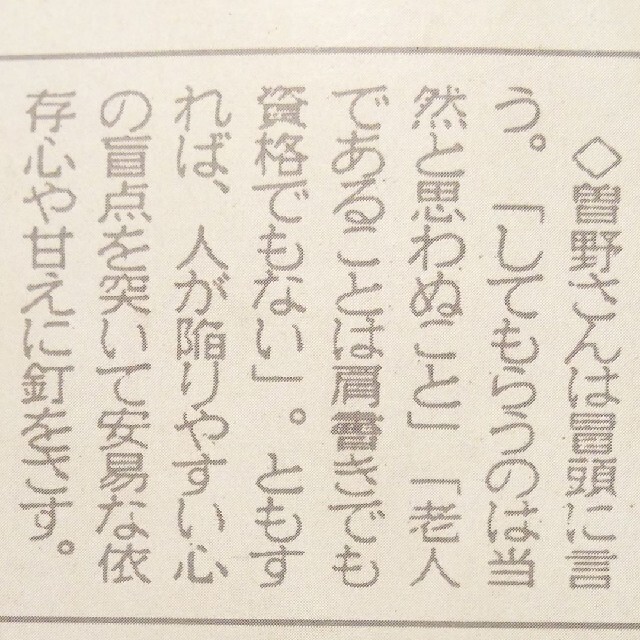 ◇曽野さんは冒頭に言
う。「してもらうのは当
然と思わぬこと」「老人
であることは肩書きでも
資格でもない」。ともす
れば、人が陥りやすい心
の盲点を突いて安易な依
存心や甘えに釘をさす。